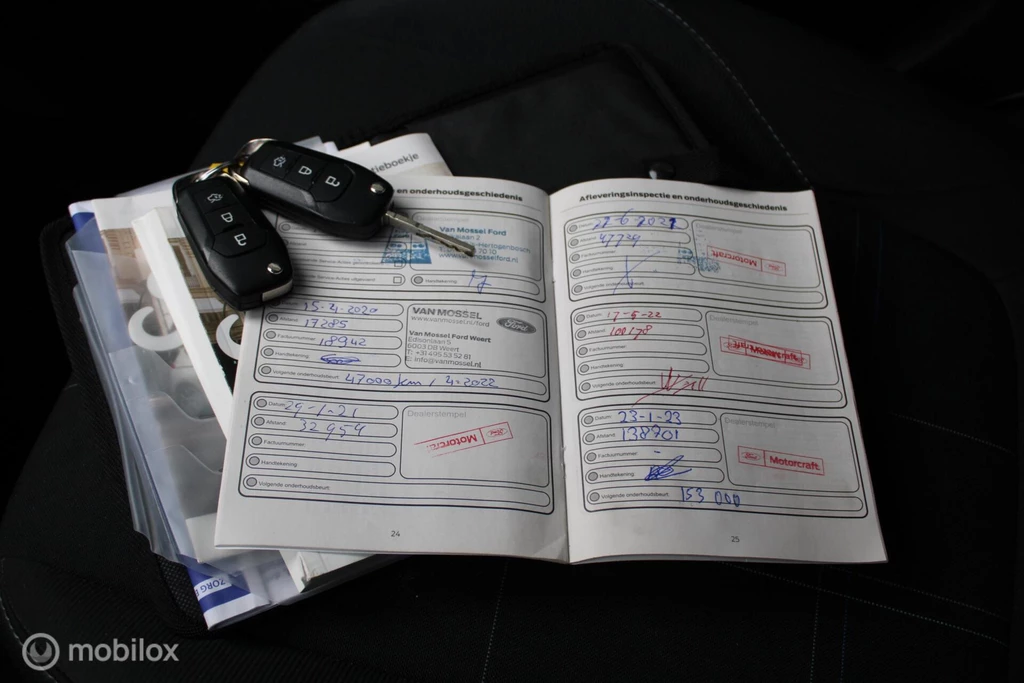 ieboekje
e en onderhoudsgeschiedenis
Van Mossel Ford
-Hertogenbosch
www.vanmossel.nl/ford
Handtekening:
15-4-2020
Afstand: 17285
Factuurnummer: 18942
Handtekening:
Volgende onderhoudsbeurt: 47000 km / 4-2022
VAN MOSSEL
www.vanmossel.nl/ford
Ford
Van Mossel Ford Weert
Edisonlaan 5
6003 DB Weert
T: +31 495 53 52 61
E: info@vanmossel.nl
Datum: 29-1-21
Afstand: 32959
Factuurnummer:
Handtekening:
Volgende onderhoudsbeurt:
Dealerstempel
Motorcraft
24
Afleveringsinspectie en onderhoudsgeschiedenis
Datum:
Afstand: 47739
Factuurnummer:
Handtekening:
Volgende onderhoudsbeurt:
Dealerstempel
Motorcraft
Datum: 17-5-22
Afstand: 100178
Factuurnummer:
Handtekening:
Volgende onderhoudsbeurt:
Dealerstempel
Motorcraft
Datum: 23-1-23
Afstand: 138701
Factuurnummer: -
Handtekening:
Volgende onderhoudsbeurt: 153 000
Dealerstempel
Ford Motorcraft
25
ZORG
mobilox